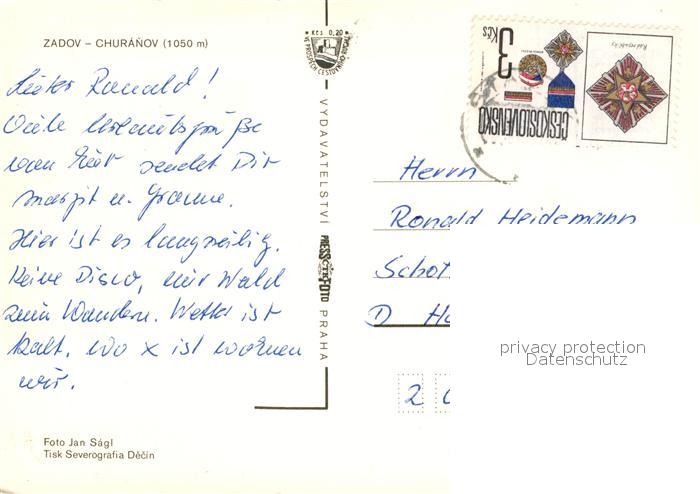 ZADOV – CHURÁŇOV (1050 m)
Lieber Ronald!
Viele Urlaubsgrüße
von hier sendet Dir
Margit u. Yvonne.
Hier ist es langweilig.
Keine Disco, nur Wald
zum Wandern. Wetter ist
kalt. Wo x ist wohnen
wir.
Foto Jan Ságl
Tisk Severografia Děčín
Kčs 0,20
VE PROSPĚCH CESTOVNÍHO RUCHU
VYDAVATELSTVÍ PRESSFOTO PRAHA
ČTK
3 Kčs
ČESKOSLOVENSKO
Řád republiky
Herrn
Ronald Heidemann
Schot
D Ha
2
privacy protection
Datenschutz